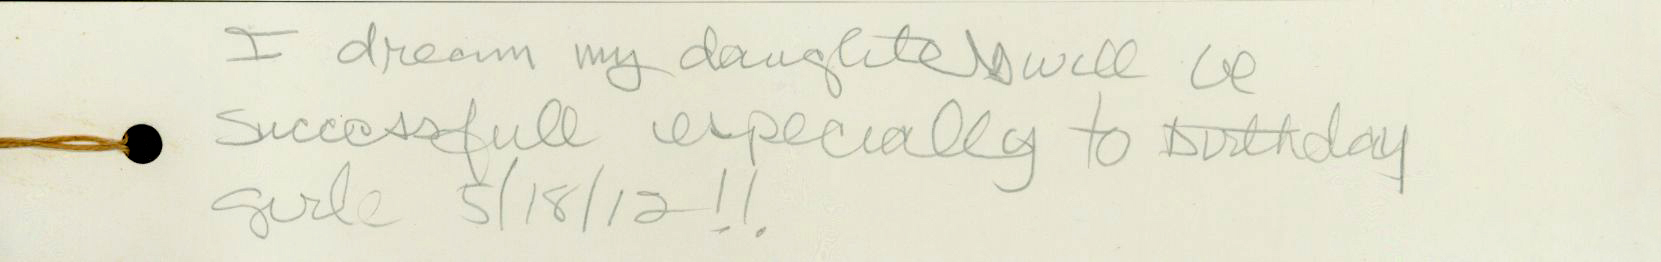 I dream my daughters will be
successfull especially to birthday
girle 5/18/12!!